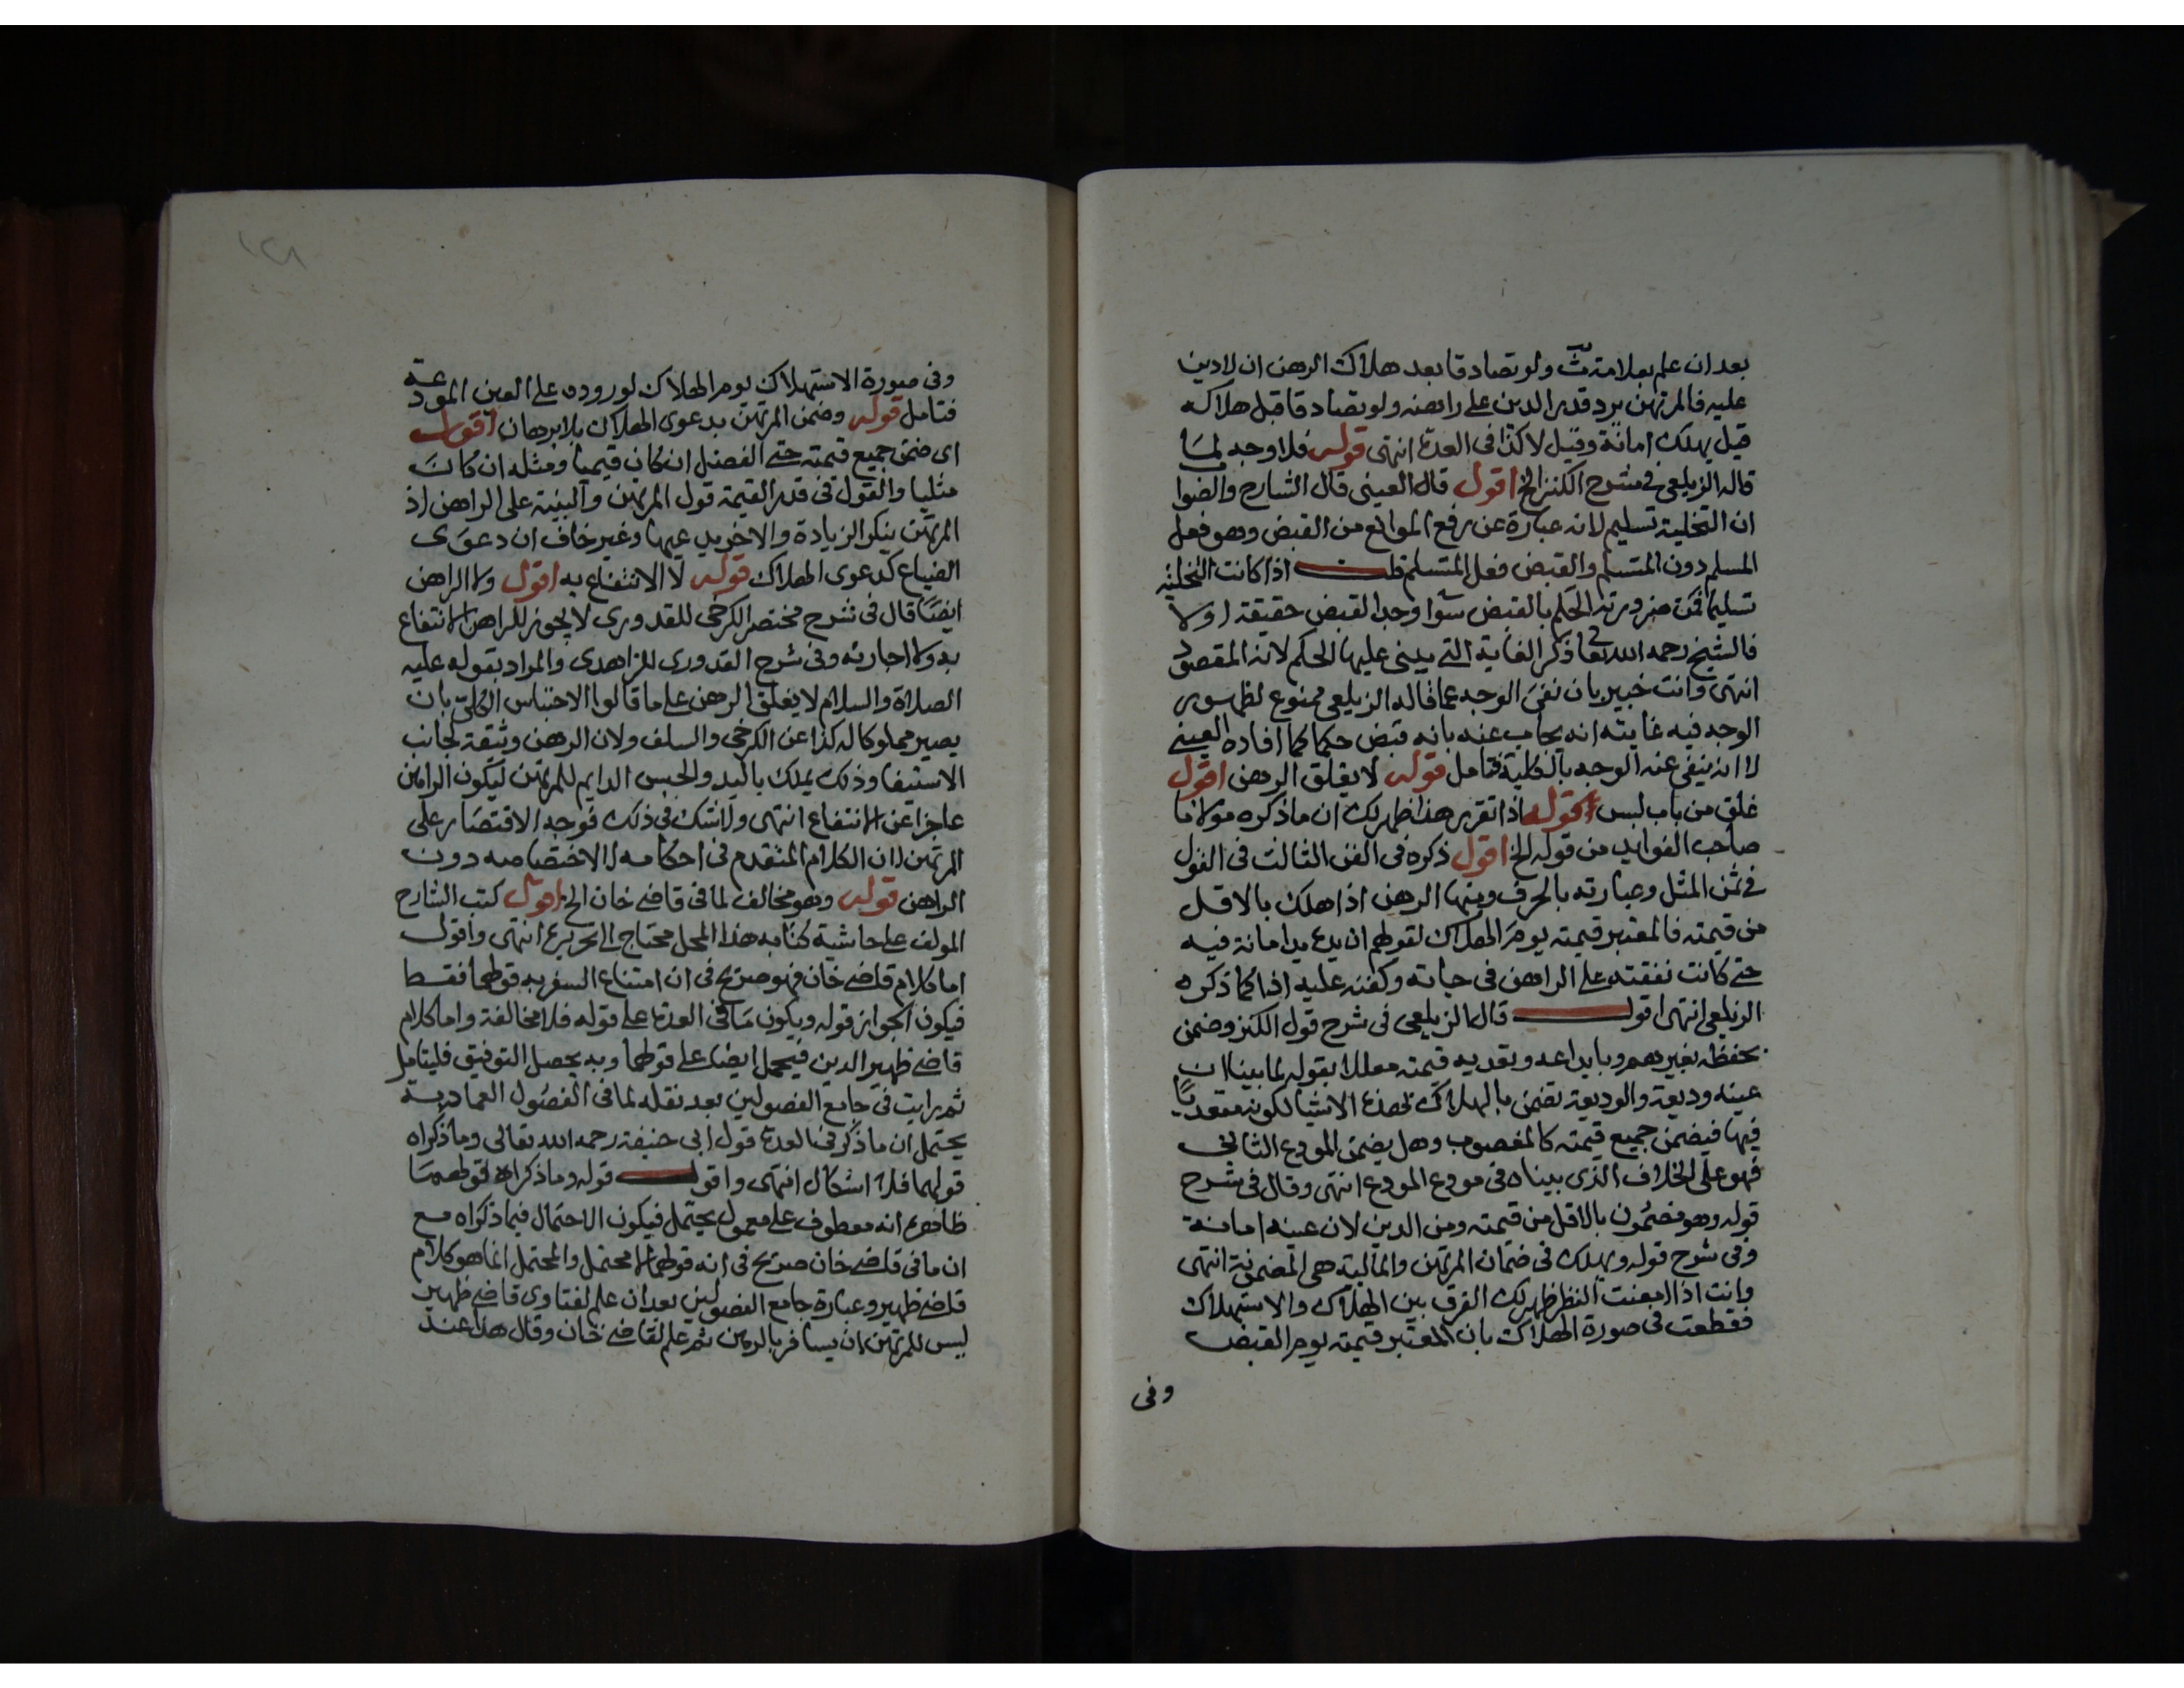 بعد ان علم بعلامة ثّ ولو تصادقا بعد هلاك الرهن ان لا دين
عليه فالمرتهن يرد قدر الدين على راهنه ولو تصادقا قبل هلاكه
قيل يهلك امانة وقيل لا كذا فى العدة انتهى قوله فلا وجه لما
قاله الزيلعى فى شرح الكنز الخ اقول قال العينى قال الشارح والصوا
ان التخلية تسليم لانه عبارة عن رفع الموانع من القبض وهو فعل
المسلم دون المتسلم والقبض فعل المتسلم قلت اذا كانت التخلية
تسليما فمن ضرورته الحكم بالقبض سوا وجد القبض حقيقة او لا
فالشيخ رحمه الله تعا ذكر الغاية التى يبنى عليها الحكم لانه المقصود
انتهى وانت خبير بان نفى الوجه عما قاله الزيلعى ممنوع لظهور
الوجه فيه غايته انه يجاب عنه بانه قبض حكما كما افاده العينى
لا انه ينفى عنه الوجه بالكلية فتامل قوله لا يغلق الرهن اقول
غلق من باب لبس قوله اذا تقرر هذا ظهر لك ان ما ذكره مولانا
صاحب الفوايد من قوله الخ اقول ذكره فى الفن الثالث فى القول
فى ثمن المثل وعبارته بالحرف ومنها الرهن اذا هلك بالاقل
من قيمته فالمعتبر قيمته يوم الهلاك لقولهم ان يده يد امانة فيه
حتى كانت نفقته على الراهن فى حياته وكفنه عليه اذا كما ذكره
الزيلعى انتهى اقول قال الزيلعى فى شرح قول الكنز وضمن
بحفظه بغيرهم وبايداعه وتعديه قيمته معللا بقوله لما بينا ان
عينه وديعة والوديعة تضمن بالهلاك بهذه الاشيا لكونه متعديًا
فيها فيضمن جميع قيمته كالمغصوب وهل يضمن المودع الثانى
فهو على الخلاف الذى بيناه فى مودع المودع انتهى وقال فى شرح
قوله وهو مضمون بالاقل من قيمته ومن الدين لان عينه امانة
وفى شرح قوله ويهلك فى ضمان المرتهن والمالية هى المضمونة انتهى
وانت اذا امعنت النظر ظهر لك الفرق بين الهلاك والاستهلاك
فقطعت فى صورة الهلاك بان المعتبر قيمته يوم القبض
وفى
١٢٨
وفى صورة الاستهلاك يوم الهلاك لوروده على العين المودعة
فتامل قوله وضمن المرتهن بدعوى الهلاك بلا برهان اقول
اى ضمن جميع قيمته حتى الفضل ان كان قيميا ومثله ان كان
مثليا والقول فى قدر القيمة قول المرتهن والبينة على الراهن اذ
المرتهن ينكر الزيادة والاخر يدعيها وغير خاف ان دعوى
الضياع كدعوى الهلاك قوله لا الانتفاع به اقول ولا الراهن
ايضا قال فى شرح مختصر الكرخى للقدورى لا يجوز للراهن الانتفاع
به ولا اجارته وفى شرح القدورى للزاهدى والمراد بقوله عليه
الصلاة والسلام لا يغلق الرهن على ما قالوا الاحتباس الكلى بان
يصير مملوكا له كذا عن الكرخى والسلف ولان الرهن وثيقة لجانب
الاستيفا وذلك يملك باليد والحبس الدايم للمرتهن ليكون الراهن
عاجزا عن الانتفاع انتهى ولا شك فى ذلك فوجه الاقتصار على
المرتهن لان الكلام المتقدم فى احكامه لا لاختصاصه دون
الراهن قوله وهو مخالف لما فى قاضى خان الخ اقول كتب الشارح
المولف على حاشية كتابه هذا المحل محتاج الى تحرير انتهى واقول
اما كلام قاضى خان فهو صريح فى ان امتناع السفر به قولهما فقط
فيكون الجواز قوله ويكون ما فى العدة على قوله فلا مخالفة واما كلام
قاضى ظهير الدين فيحمل ايضا على قولهما وبه يحصل التوفيق فليتامل
ثم رايت فى جامع الفصولين بعد نقله لما فى الفصول العمادية
يحتمل ان ما ذكر فى العدة قول ابى حنيفة رحمه الله تعالى وما ذكراه
قولهما فلا اشكال انتهى واقول قوله وما ذكراه قولهما
ظاهره انه معطوف على معمول يحتمل فيكون الاحتمال فيما ذكراه مع
ان ما فى قاضى خان صريح فى انه قولهما لا محتمل والمحتمل انما هو كلام
قاضى ظهير وعبارة جامع الفصولين بعد ان علم لفتاوى قاضى ظهير
ليس للمرتهن ان يسافر بالرهن ثم علم لقاضى خان وقال هذا عند